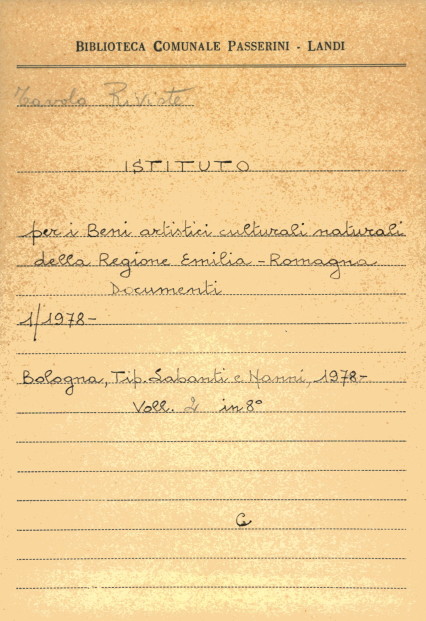 BIBLIOTECA COMUNALE PASSERINI - LANDI
Tavolo Riviste
ISTITUTO
per i Beni artistici culturali naturali
della Regione Emilia - Romagna
Documenti
1/1978-
Bologna, Tip. Labanti e Nanni, 1978-
Voll. 2 in 8°
C